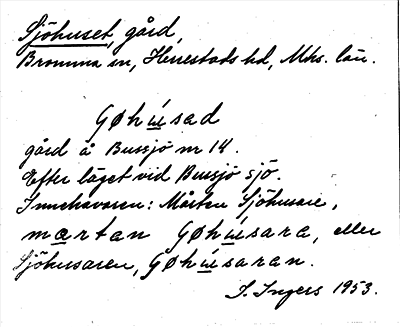 Sjöhuset, gård,
Bromma sn, Herrestads hd, Mhs. län.
Gøhúsad
gård å Bussjö nr 14.
Efter läget vid Bussjö sjö.
Innehavaren: Mårten Sjöhusare,
martan Gøhúsara, eller
Sjöhusaren, Gøhúsaran.
I. Ingers 1953.